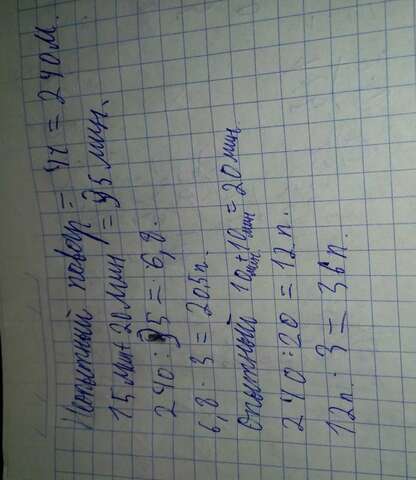 Неопытный повар = 4ч = 240м.
15мин + 20мин = 35мин.
240 : 35 = 6,8.
6,8 · 3 = 20,5п.
Опытный 10мин + 10мин = 20мин
240 : 20 = 12п.
12п. · 3 = 36п.